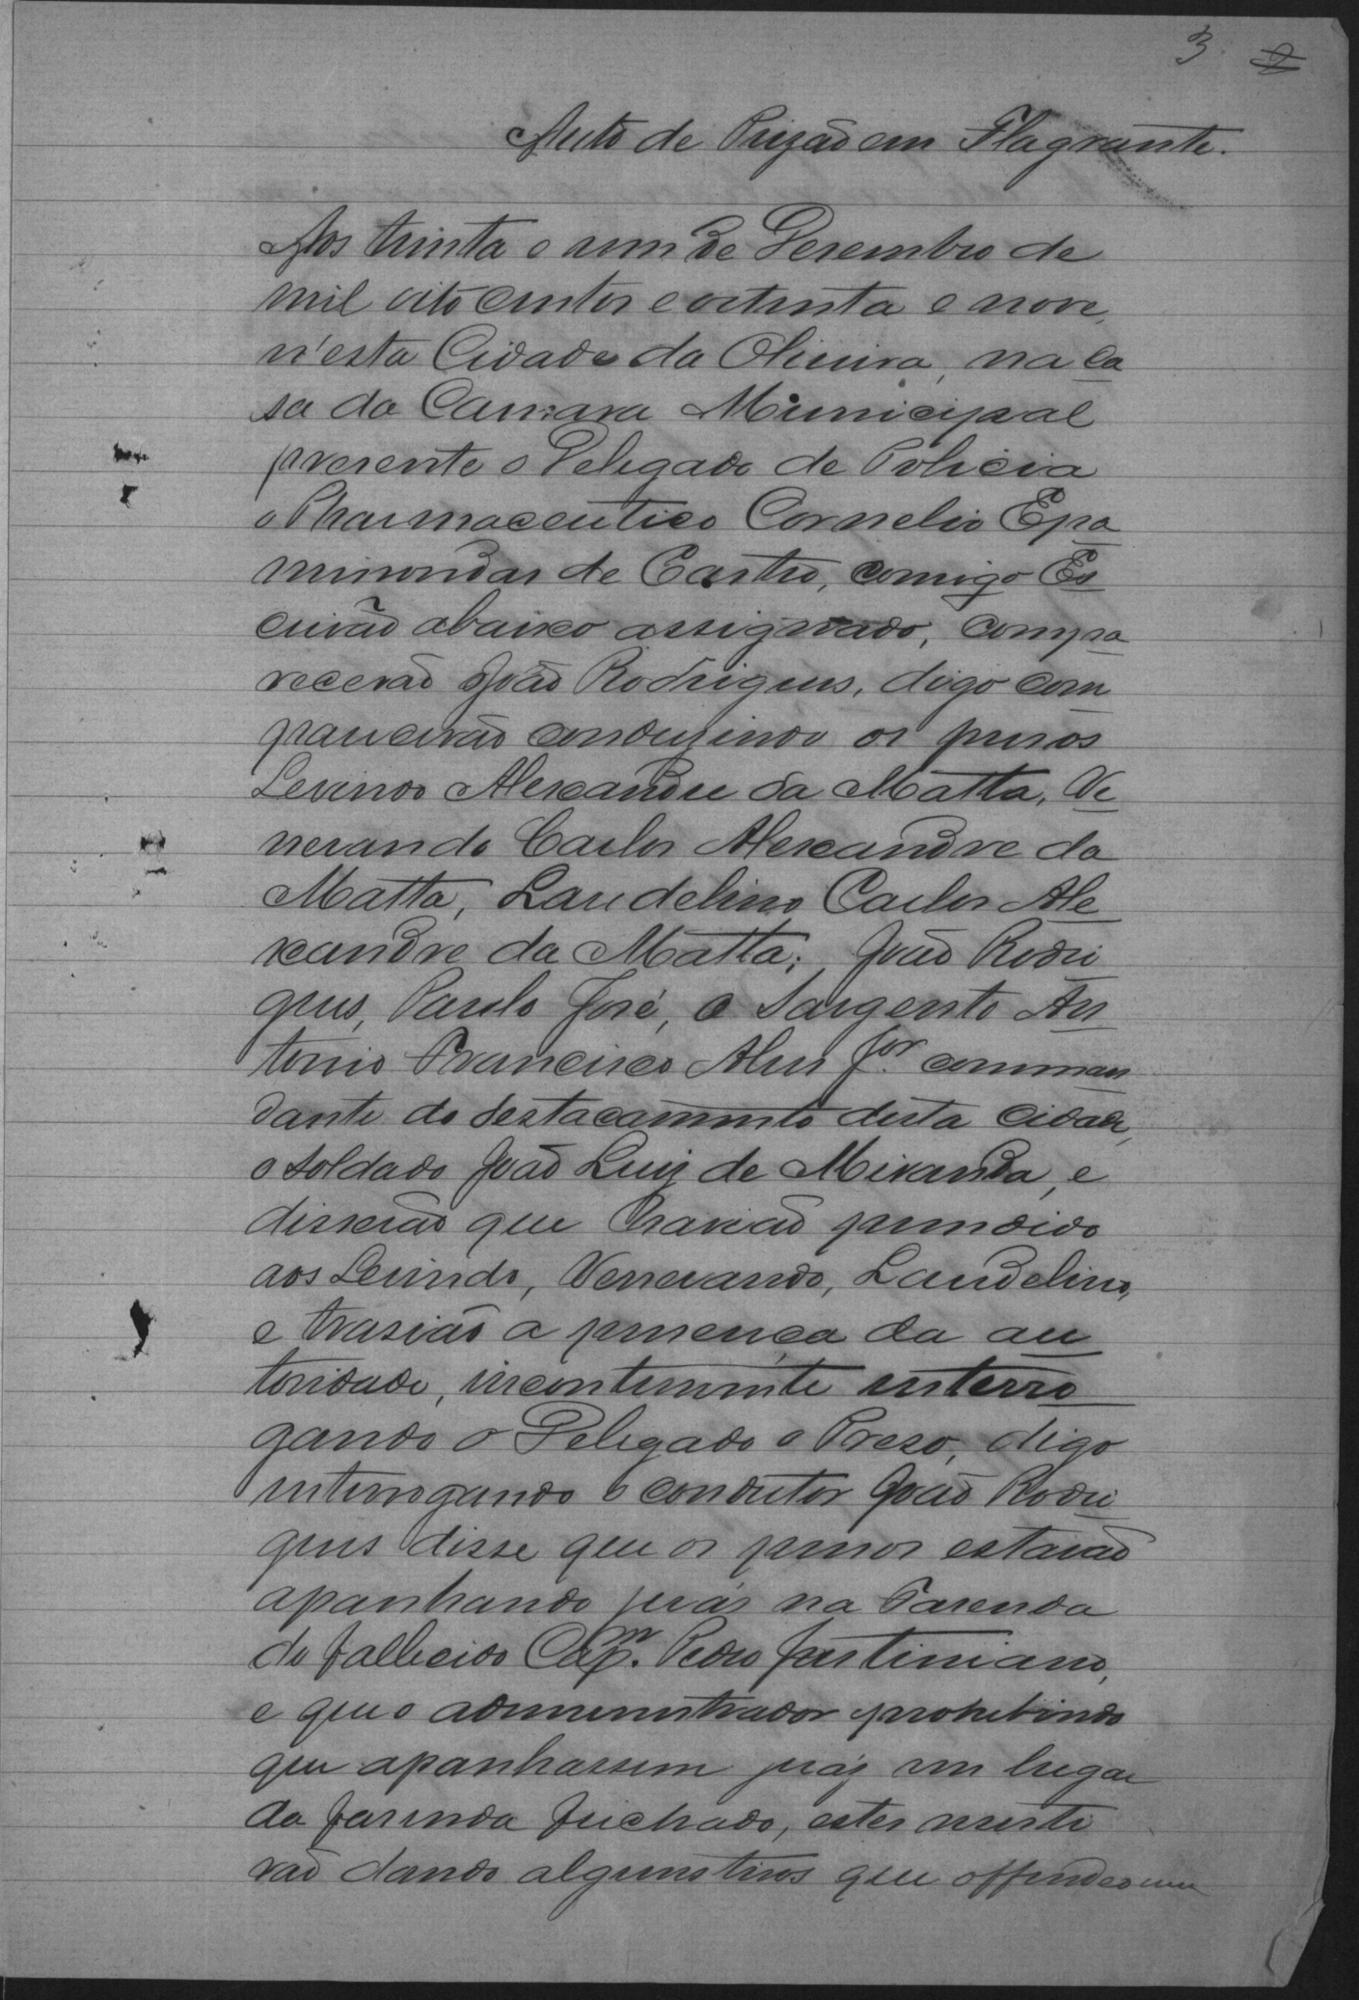 3 2
Auto de Prizão em Flagrante.
Aos trinta e um de Dezembro de
mil oito centos e oitenta e nove,
n'esta Cidade da Oliveira, na ca
sa da Camara Municipal
presente o Delegado de Policia
o Pharmaceutico Cornelio Epa
minondas de Castro, comigo Es
crivão abaixo assignado, compa
recerão João Rodrigues, digo com
parecerão conduzindo os presos
Levindo Alexandre da Matta, Ve
nerando Carlos Alexandre da
Matta, Laudelino Carlos Ale
xandre da Matta; João Rodri
gues, Paulo José, o Sargento An
tonio Francisco Alves Jor. comman
dante do destacamento desta cidade,
o soldado João Luiz de Miranda, e
disserão que havião prendido
aos Levindo, Venerando, Laudelino,
e trasião a presença da au
toridade, incontinente interro
gando o Delegado o Prezo, digo
interrogando o condutor João Rodri
gues disse que os presos estavão
apanhando jacás na Fazenda
do fallecido Capm. Pedro Justiniano,
e que o administrador prohibindo
que apanhassem em lugar
da fazenda fechado, estes resisti
rão dando alguns tiros que offendeo um